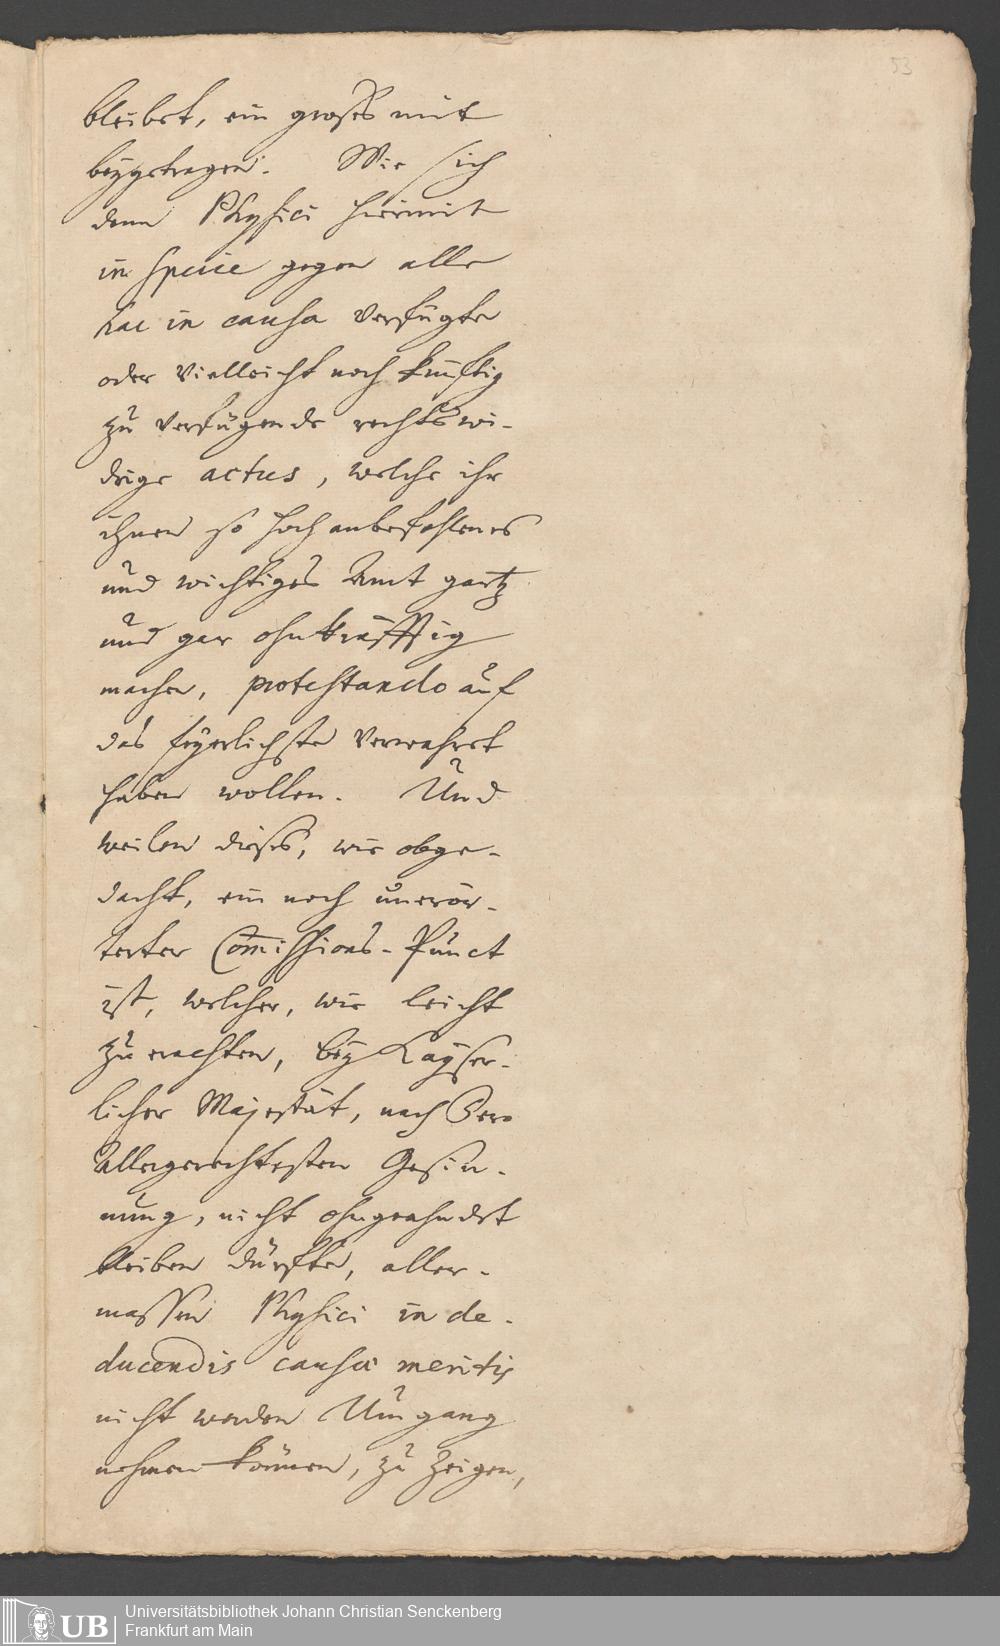 53
bleibet, ein großes mit
beygetragen. Wie sich
denn Physici hiermit
in specie gegen alle
hac in causa verfügte
oder vielleicht noch künftig
zu verfügende rechtswi-
drige actus, welche ihr
ihnen so hoch anbefohlenes
und wichtiges Amt gantz
und gar ohnkräfftig
machen, protestando auf
das feyerlichste verwahret
haben wollen. Und
weilen dieses, wie obge-
dacht, ein noch unerör-
terter Com̅issions-Punct
ist, welcher, wie leicht
zu erachten, bey Kayser-
licher Majestät, nach Dero
allergerechtesten Gesin-
nung, nicht ohngeahndet
bleiben dürfte, aller-
massen Physici in de-
ducendis causæ meritis
nicht werden Umgang
nehmen können, zu zeigen,
UB
Universitätsbibliothek Johann Christian Senckenberg
Frankfurt am Main